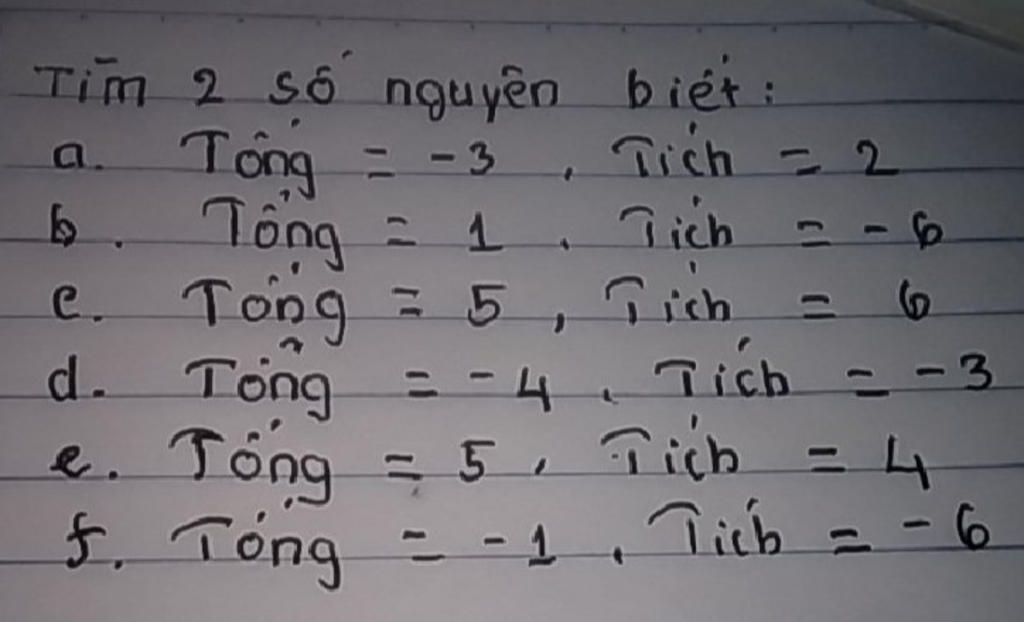 Tìm 2 số nguyên biết:
a. Tổng = -3, Tích = 2
b. Tổng = 1, Tích = -6
c. Tổng = 5, Tích = 6
d. Tổng = -4, Tích = -3
e. Tổng = 5, Tích = 4
f. Tổng = -1, Tích = -6